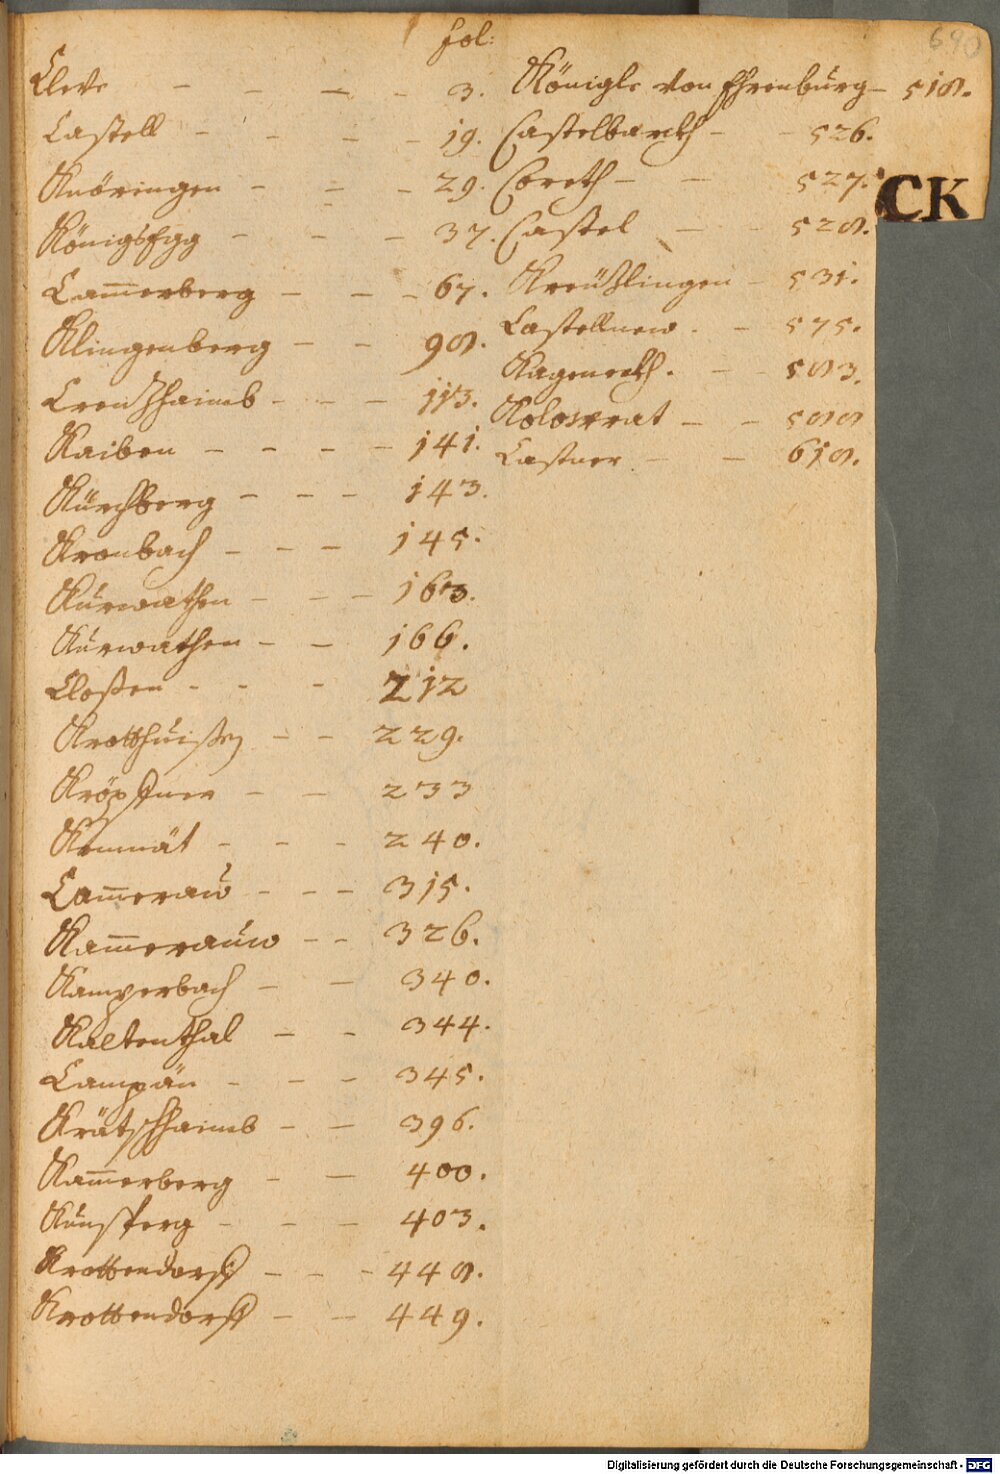 690
fol:
Cleve - - - - 3.
Castell - - - - 19.
Knöringen - - - 29.
Königsegg - - - 37.
Cam̅erberg - - - 67.
Klingenberg - - 98.
Creützhaimb - - - 113.
Kaiben - - - - 141.
Kürchberg - - - 143.
Kronbach - - - 145.
Kürwathen - - - 163.
Kürwathen - - 166.
Closen - - - 212
Krotthuisen - - 229.
Kröpfner - - 233
Kemnat - - - 240.
Cam̅eraw - - - 315.
Kam̅erauw - - 326.
Kamperbach - - 340.
Kaltenthal - - 344.
Campän - - - 345.
Krätschhaimb - - 396.
Kam̅erberg - - 400.
Künsperg - - - 403.
Krottendorff - - - 448.
Krottendorff - - 449.
Königle von Ehrenburg - 518.
Castelbarckh - - 526.
Coreth - - 527.
Castel - - 528.
Kreützlingen - 531.
Castellnew. - 575.
Kageneckh. - - 583.
Kolowrat - - 588
Castner - - 618.
CK
Digitalisierung gefördert durch die Deutsche Forschungsgemeinschaft - DFG